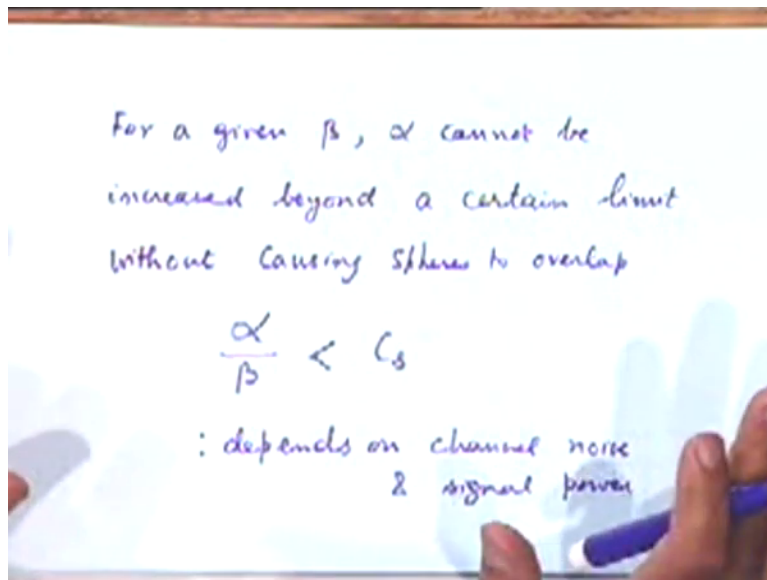 For a given β, α cannot be
increased beyond a certain limit
without causing spheres to overlap
α/β < Cs
: depends on channel noise
& signal power